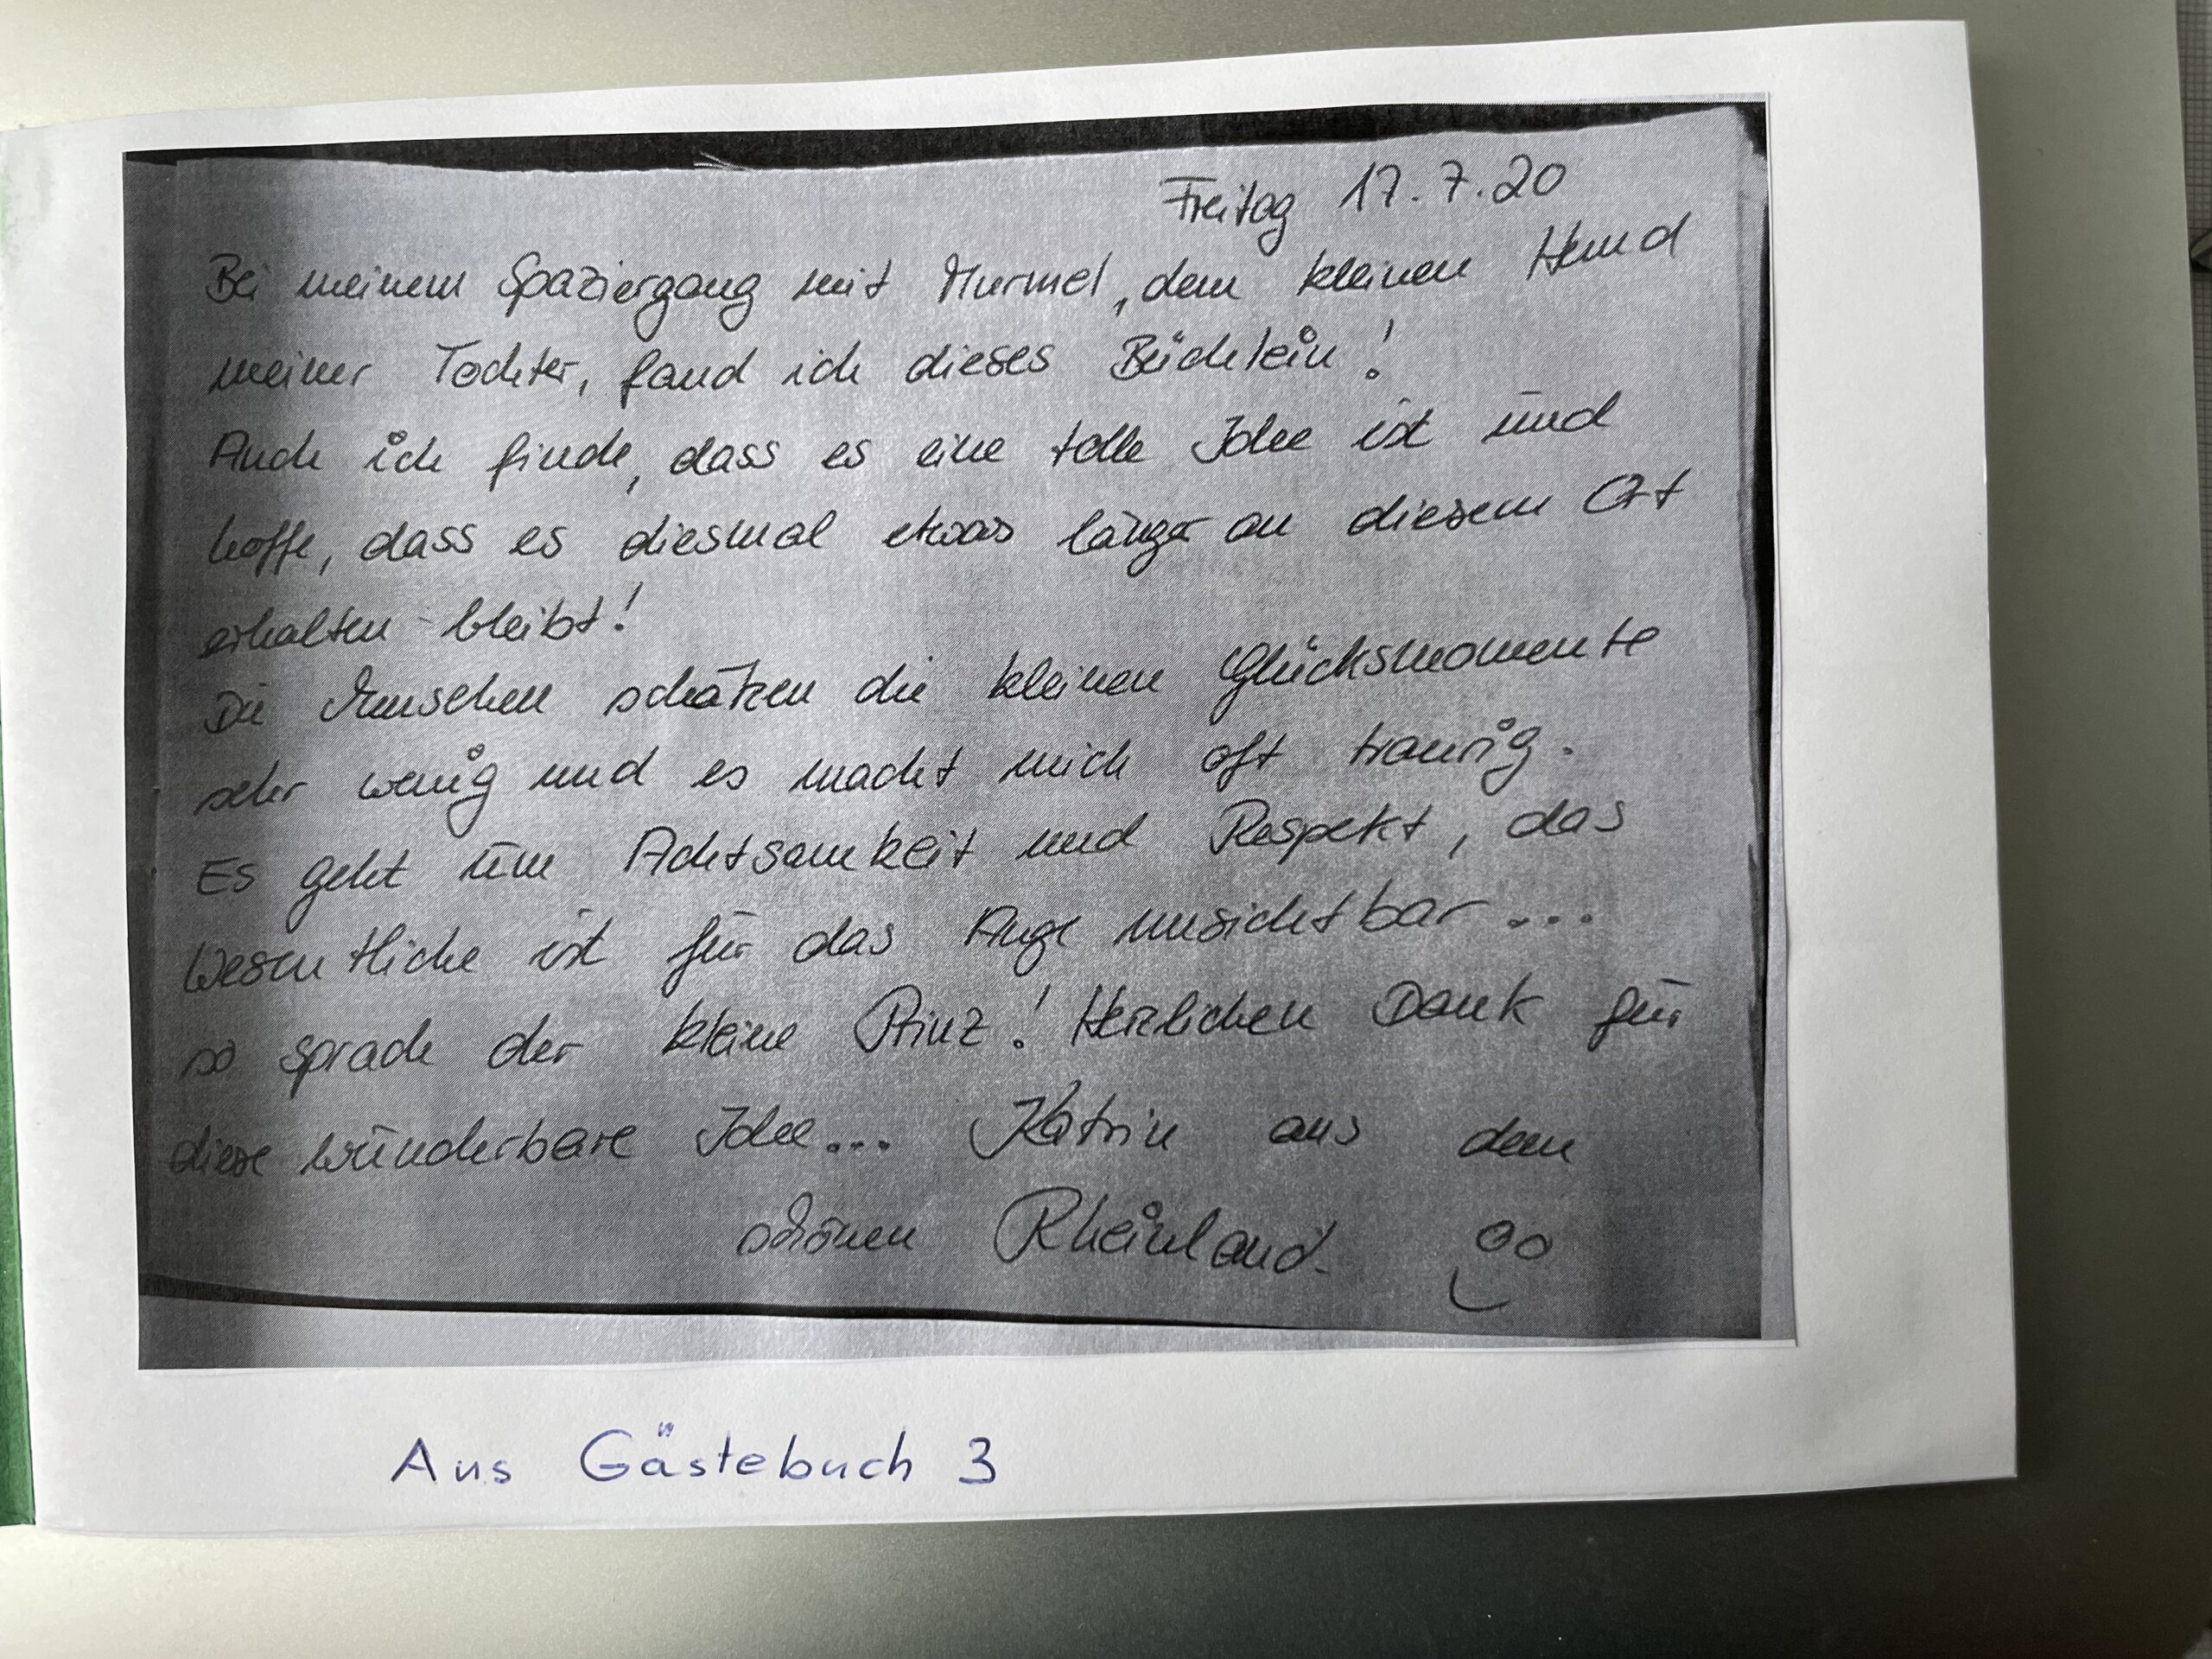 Freitag 17.7.20
Bei meinem Spaziergang mit Murmel, dem kleinen Hund
meiner Tochter, fand ich dieses Büchlein!
Auch ich finde, dass es eine tolle Idee ist und
hoffe, dass es diesmal etwas länger an diesem Ort
erhalten bleibt!
Die Menschen schätzen die kleinen Glücksmomente
sehr wenig und es macht mich oft traurig.
Es geht um Achtsamkeit und Respekt, das
Wesentliche ist für das Auge unsichtbar...
so sprach der kleine Prinz! Herzlichen Dank für
diese wunderbare Idee... Katrin aus dem
schönen Rheinland.
Aus Gästebuch 3